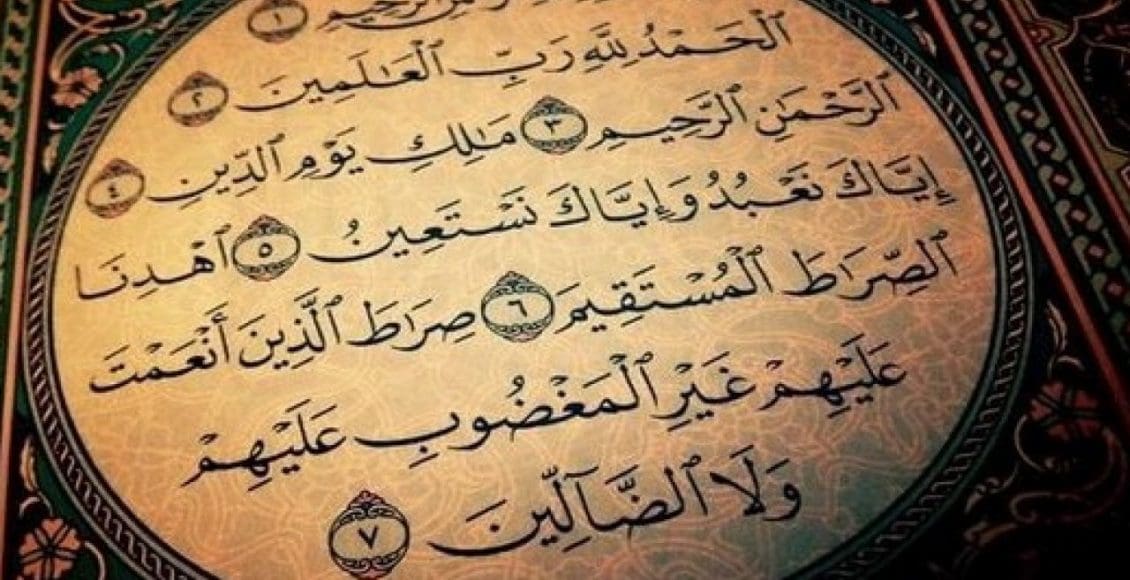 ٱلرَّحِيمِ ١
ٱلْحَمْدُ لِلَّهِ رَبِّ ٱلْعَٰلَمِينَ ٢
ٱلرَّحْمَٰنِ ٱلرَّحِيمِ ٣ مَٰلِكِ يَوْمِ ٱلدِّينِ ٤
إِيَّاكَ نَعْبُدُ وَإِيَّاكَ نَسْتَعِينُ ٥ ٱهْدِنَا
ٱلصِّرَٰطَ ٱلْمُسْتَقِيمَ ٦ صِرَٰطَ ٱلَّذِينَ أَنْعَمْتَ
عَلَيْهِمْ غَيْرِ ٱلْمَغْضُوبِ عَلَيْهِمْ
وَلَا ٱلضَّآلِّينَ ٧